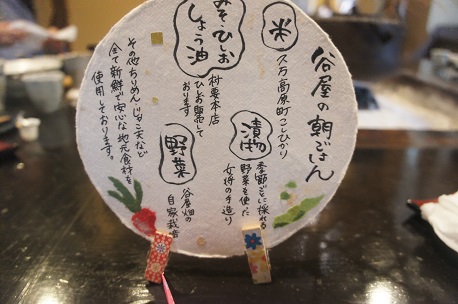 谷屋の朝ごはん
米
久万高原町こしひかり
漬物
季節ごとに採れる
野菜を使た
女将の手造り
みそ・ひしお
しょう油
村要本店
ひしお
おります
野菜
谷屋畑の
自家栽培
その他ちりめん、じゃこ天など
全て新鮮で安心な地元食材を
使用しております。